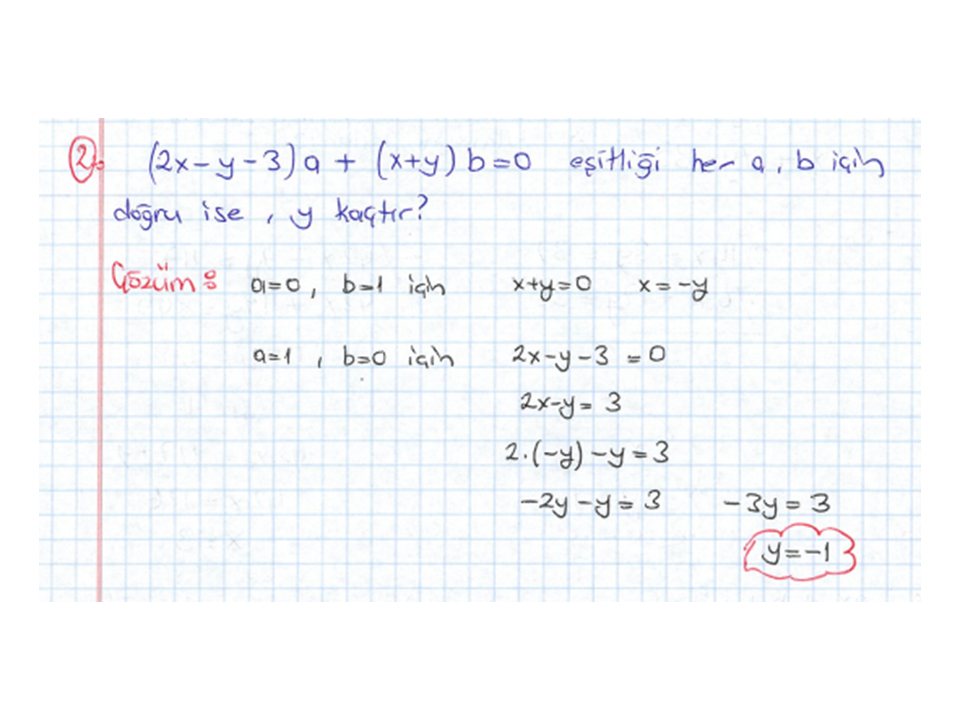 2. (2x-y-3)a + (x+y)b=0 eşitliği her a, b için
doğru ise, y kaçtır?
Çözüm: a=0, b=1 için x+y=0 x=-y
a=1, b=0 için 2x-y-3 = 0
2x-y= 3
2.(-y)-y=3
-2y-y= 3 -3y=3
y=-1